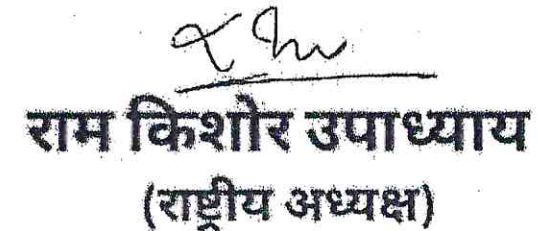 राम किशोर उपाध्याय
(राष्ट्रीय अध्यक्ष)